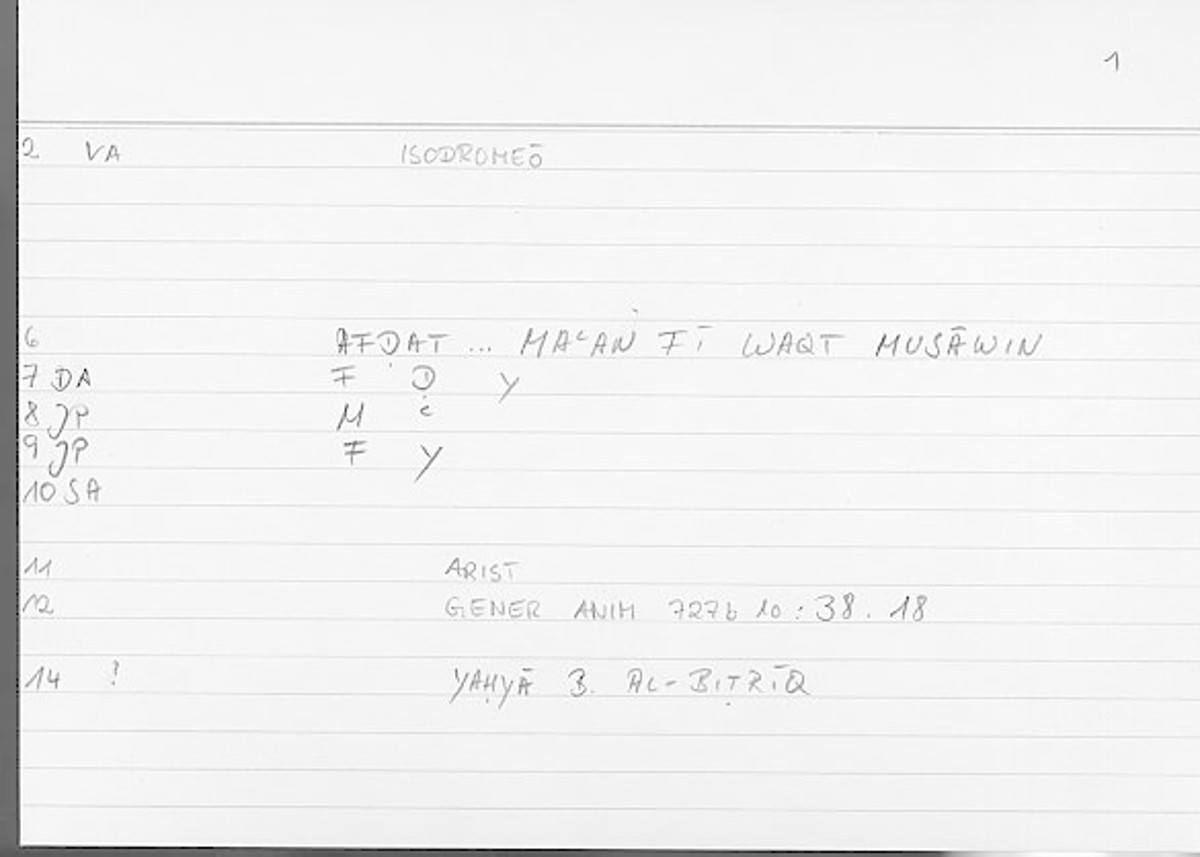 1
2 VA ISODROMEŌ
6 AFḌAT ... MAʿAN FĪ WAQT MUSĀWIN
7 DA F Ḍ Y
8 JP M ʿ
9 JP F Y
10 SA
11 ARIST
12 GENER ANIM 727b 10 : 38 . 18
14 ? YAḤYĀ B. AL-BIṬRĪQ